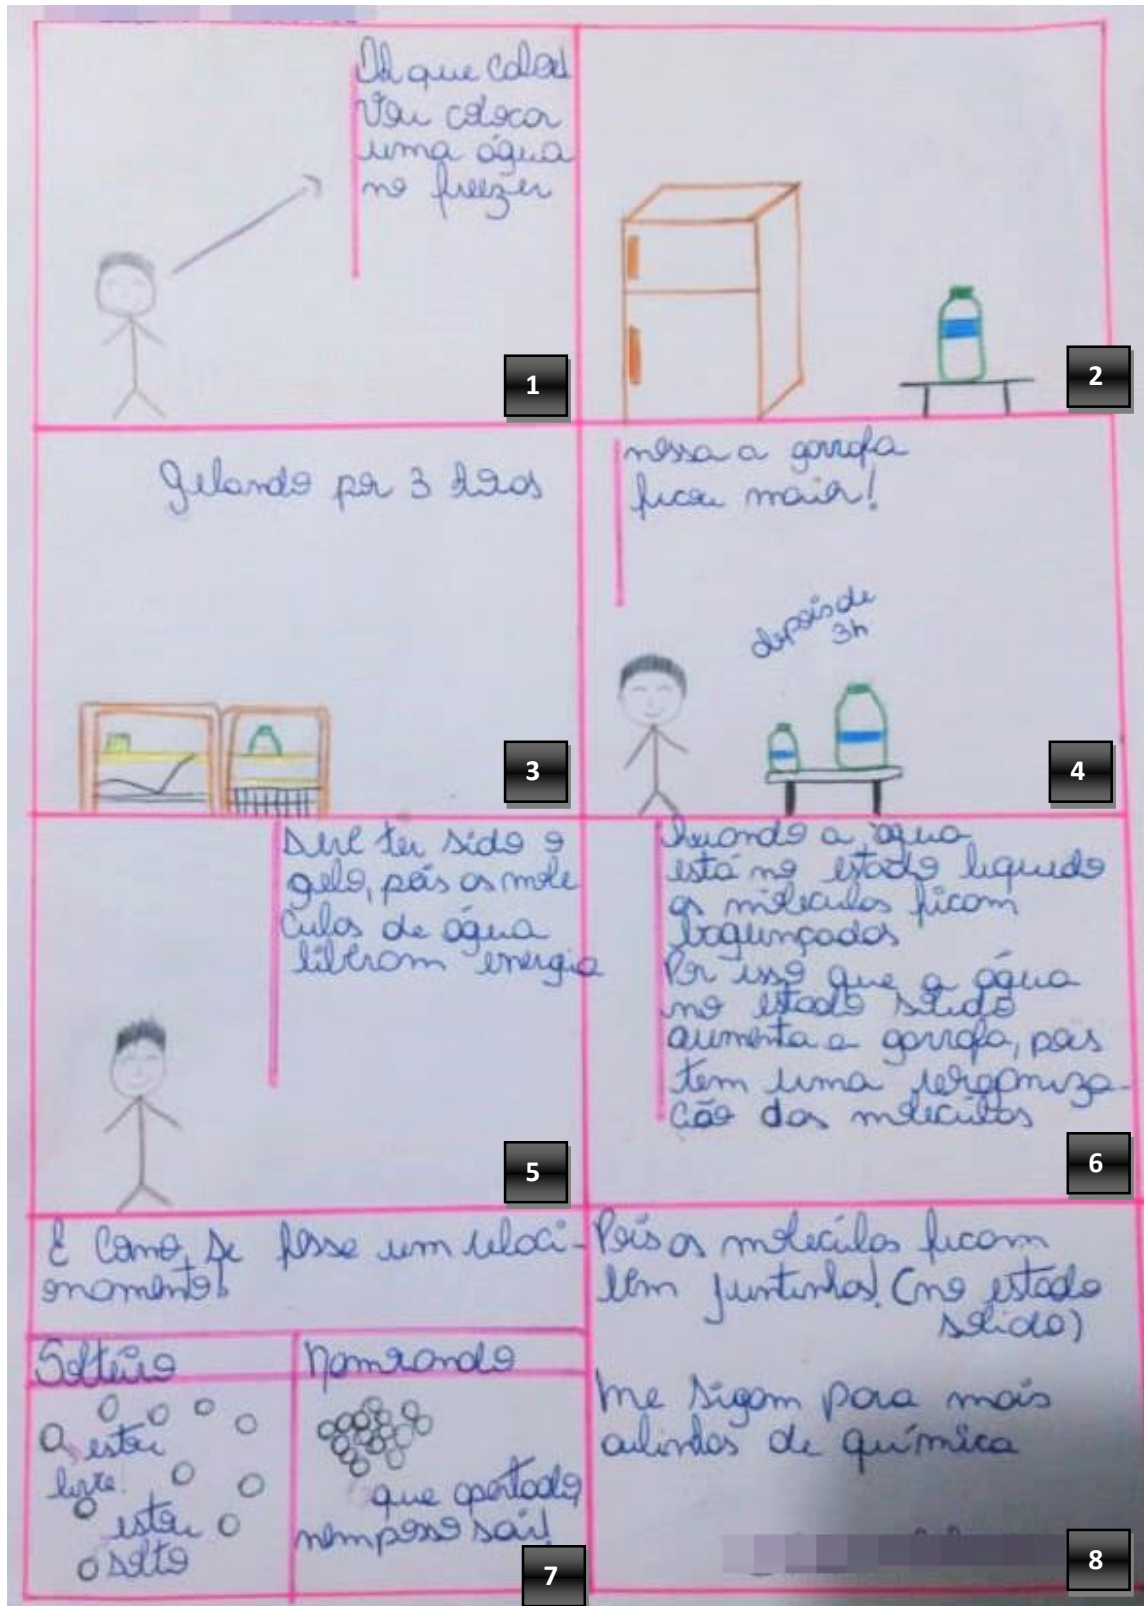 Oh que calor!
Vou colocar
uma água
no freezer
1
2
Gelando por 3 horas
3
nossa a garrafa
ficou maior!
depois de
3h
4
Deve ter sido o
gelo, pois as molé
culas de água
liberam energia
5
Quando a água
está no estado liquido
as moléculas ficam
bagunçadas
Por isso que a água
no estado solido
aumenta a garrafa, pois
tem uma reorganiza-
ção das moléculas
6
É como se fosse um relaci-
onamento!
Solteiro
Namorando
estou
livre!
estou
solto
que apertado,
nem posso sair!
7
Pois as moléculas ficam
bem juntinhas! (no estado
solido)
me sigam para mais
aulinhas de química
8